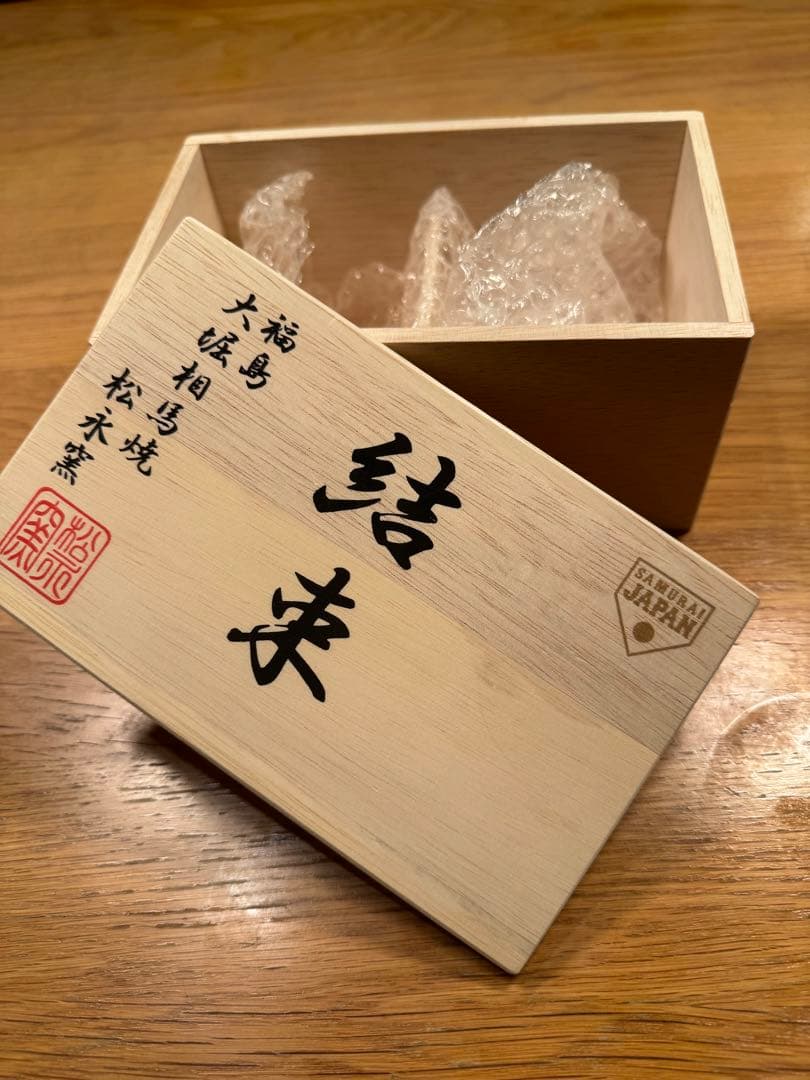 結束
福島
大堀相馬焼
松永窯
松永窯
SAMURAI
JAPAN